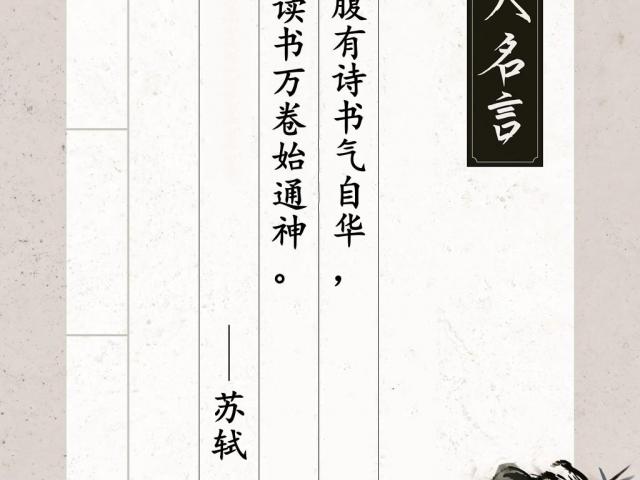 人名言
腹有诗书气自华，
读书万卷始通神。
——苏轼